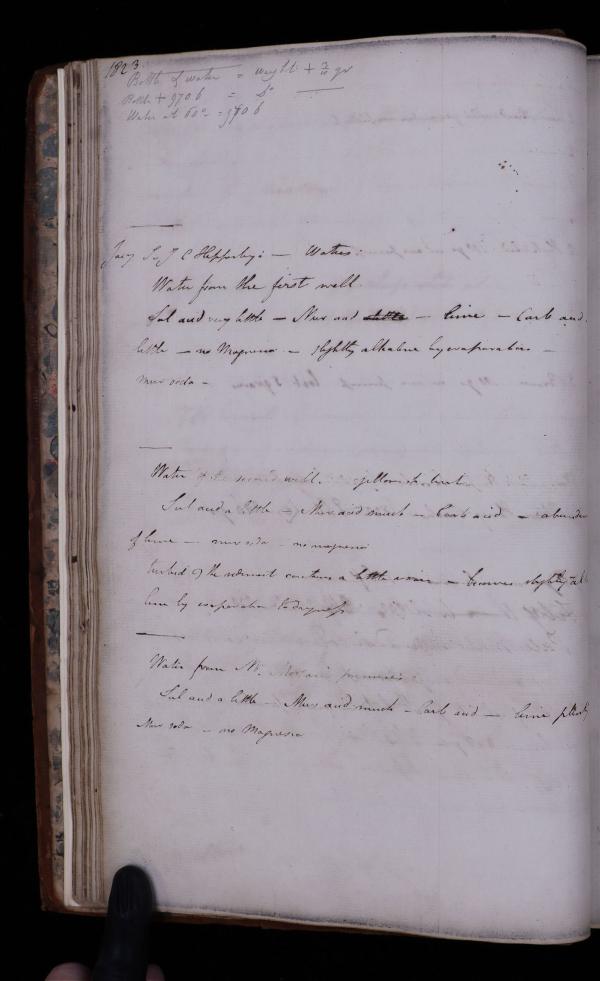 1823
Bottle of water = weight + 3/10 gr
Bottle + 970.6 = Do
Water at 60° = 970.6
Sir J C - Waters
Water from the first well
Sul acid very little - Mur acid little - lime - Carb acid
little - no Magnesia - slightly alkaline by evaporation -
mur soda -
Water of the second well. yellowish, turbid
Sul acid a little - Mur acid much - Carb acid - abundance
of lime - mur soda - no magnesia
turbid & the sediment contains a little - becomes slightly
by evaporation to dryness
Water from Mr. premises
Sul acid a little - Mur acid much - Carb acid - lime plenty
Mur soda - no Magnesia